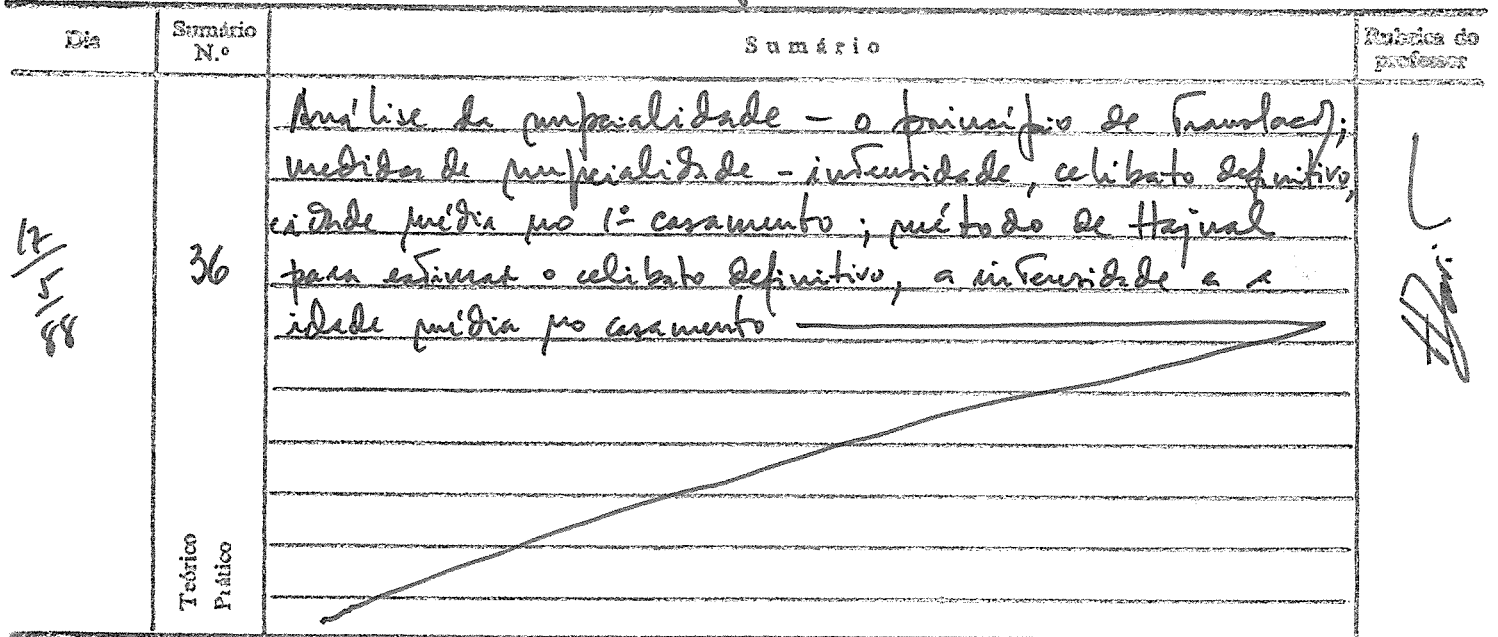 Dia
Sumário
N.º
Sumário
Rubrica do
professor
17/5/88
36
Análise da nupcialidade – o princípio de Translação;
medidas de nupcialidade – intensidade, celibato definitivo,
e idade média no 1º casamento; método de Hajnal
para estimar o celibato definitivo, a intensidade e a
idade média no casamento
Teórico
Prático